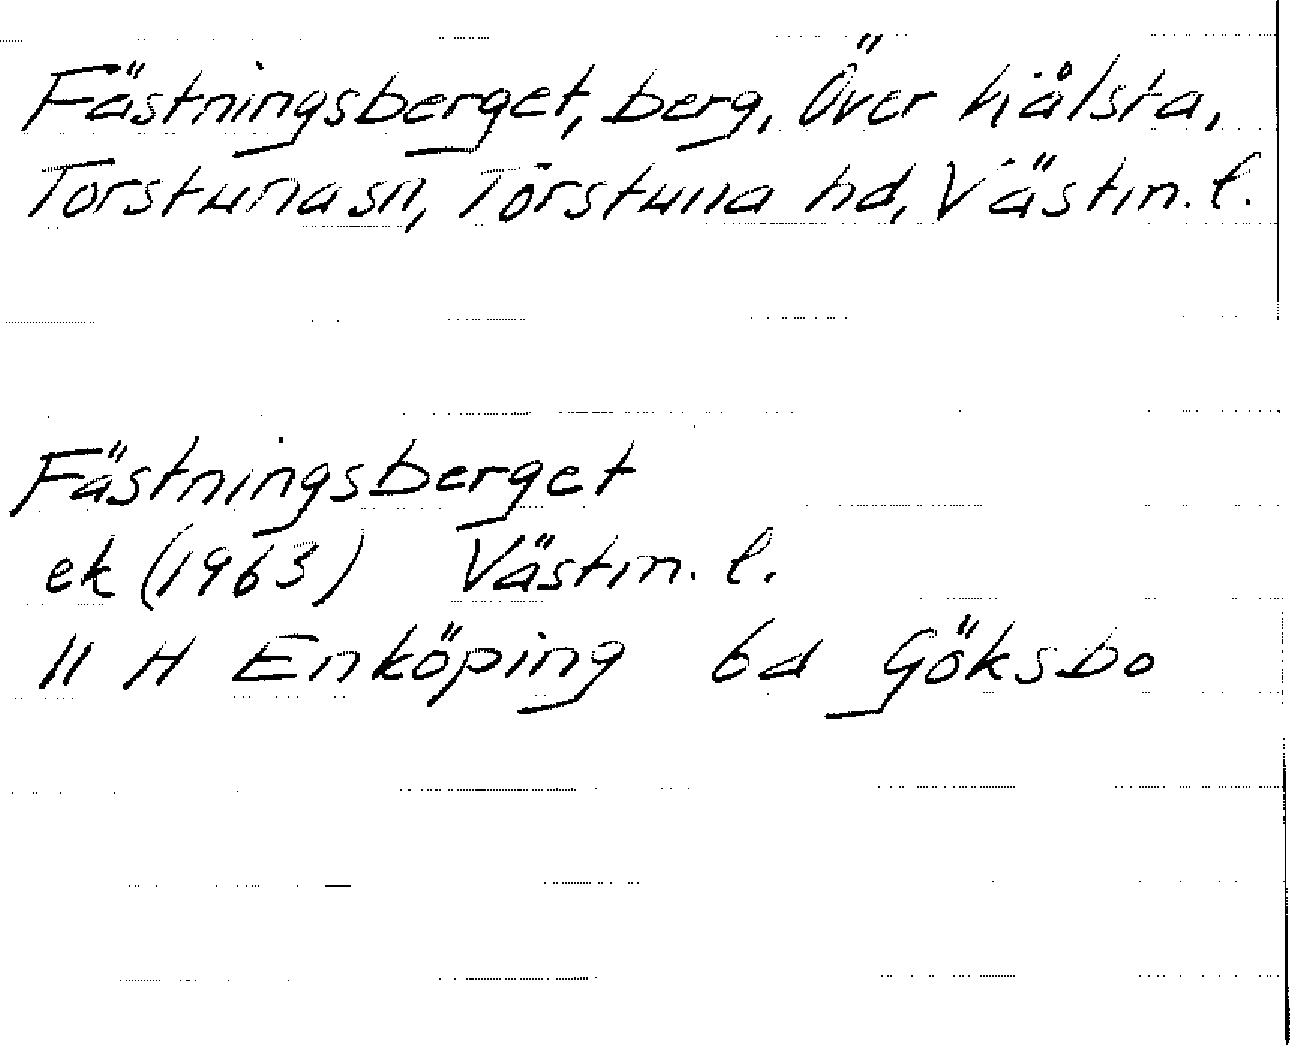 Fästningsberget, berg, Över hälsta,
Torstuna sn, Torstuna hd, Västm. l.
Fästningsberget
ek (1963) Västm. l.
11 H Enköping 6d Göksbo